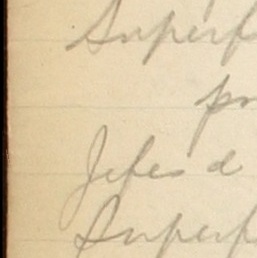 Superf
pr
Jefes d
Superf